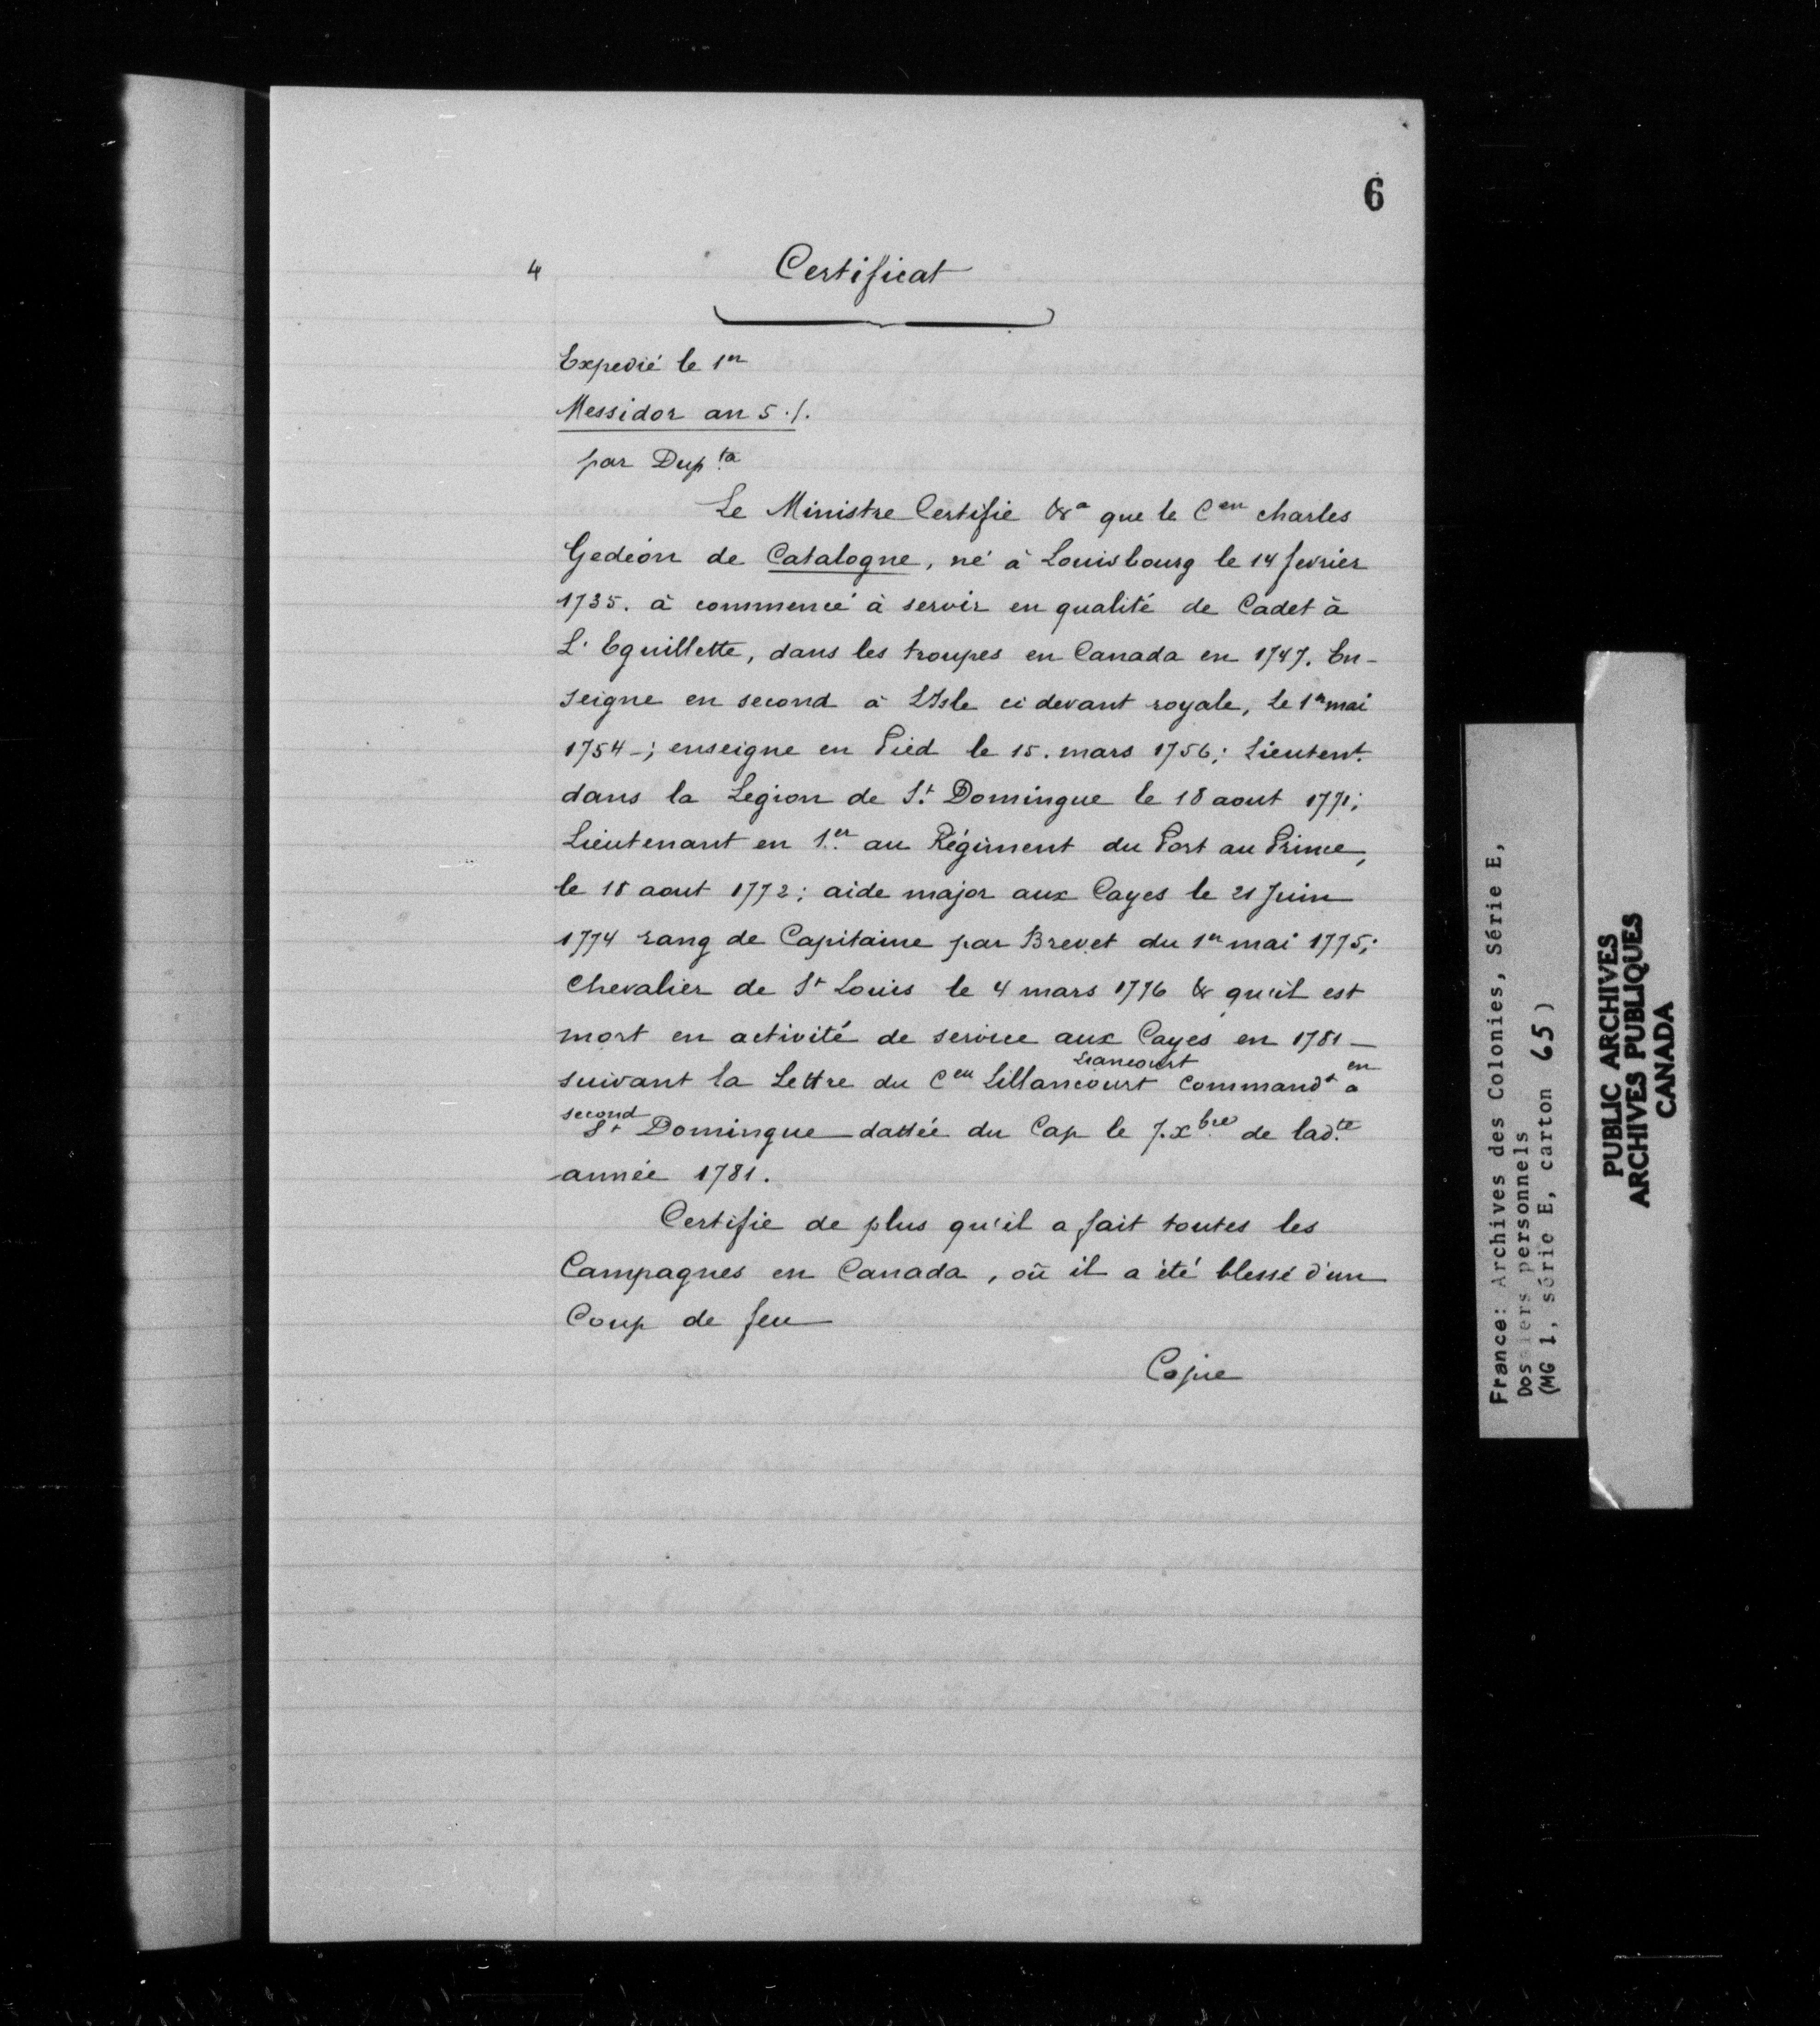 6
4 Certificat
Expedié le 1er
Messidor an 5./.
par Dup.ta
Le Ministre Certifie &a que le Cen charles
Gedéon de Catalogne, né à Louisbourg le 14 fevrier
1735. à commencé à servir en qualité de Cadet à
L'Eguillette, dans les troupes en Canada en 1747. En-
seigne en second à L'Isle ci devant royale, le 1er mai
1754-; enseigne en Pied le 15. mars 1756; Lieutent.
dans la Legion de St. Domingue le 18 aout 1771;
Lieutenant en 1er. au Régiment du Port au Prince,
le 18 aout 1772; aide major aux Cayes le 21 Juin
1774 rang de Capitaine par Brevet du 1er mai 1775;
Chevalier de St Louis le 4 mars 1776 & qu'il est
mort en activité de service aux Cayes en 1781 —
Liancourt en
suivant la Lettre du Cen Lillancourt Commandt a
second
St Domingue dattée du Cap le 7. xbre de lad.te
année 1781.
Certifie de plus qu'il a fait toutes les
Campagnes en Canada, où il a été blessé d'un
Coup de feu
Copie
France: Archives des Colonies, Série E,
Dossiers personnels
(MG 1, série E, carton 65)
PUBLIC ARCHIVES
ARCHIVES PUBLIQUES
CANADA